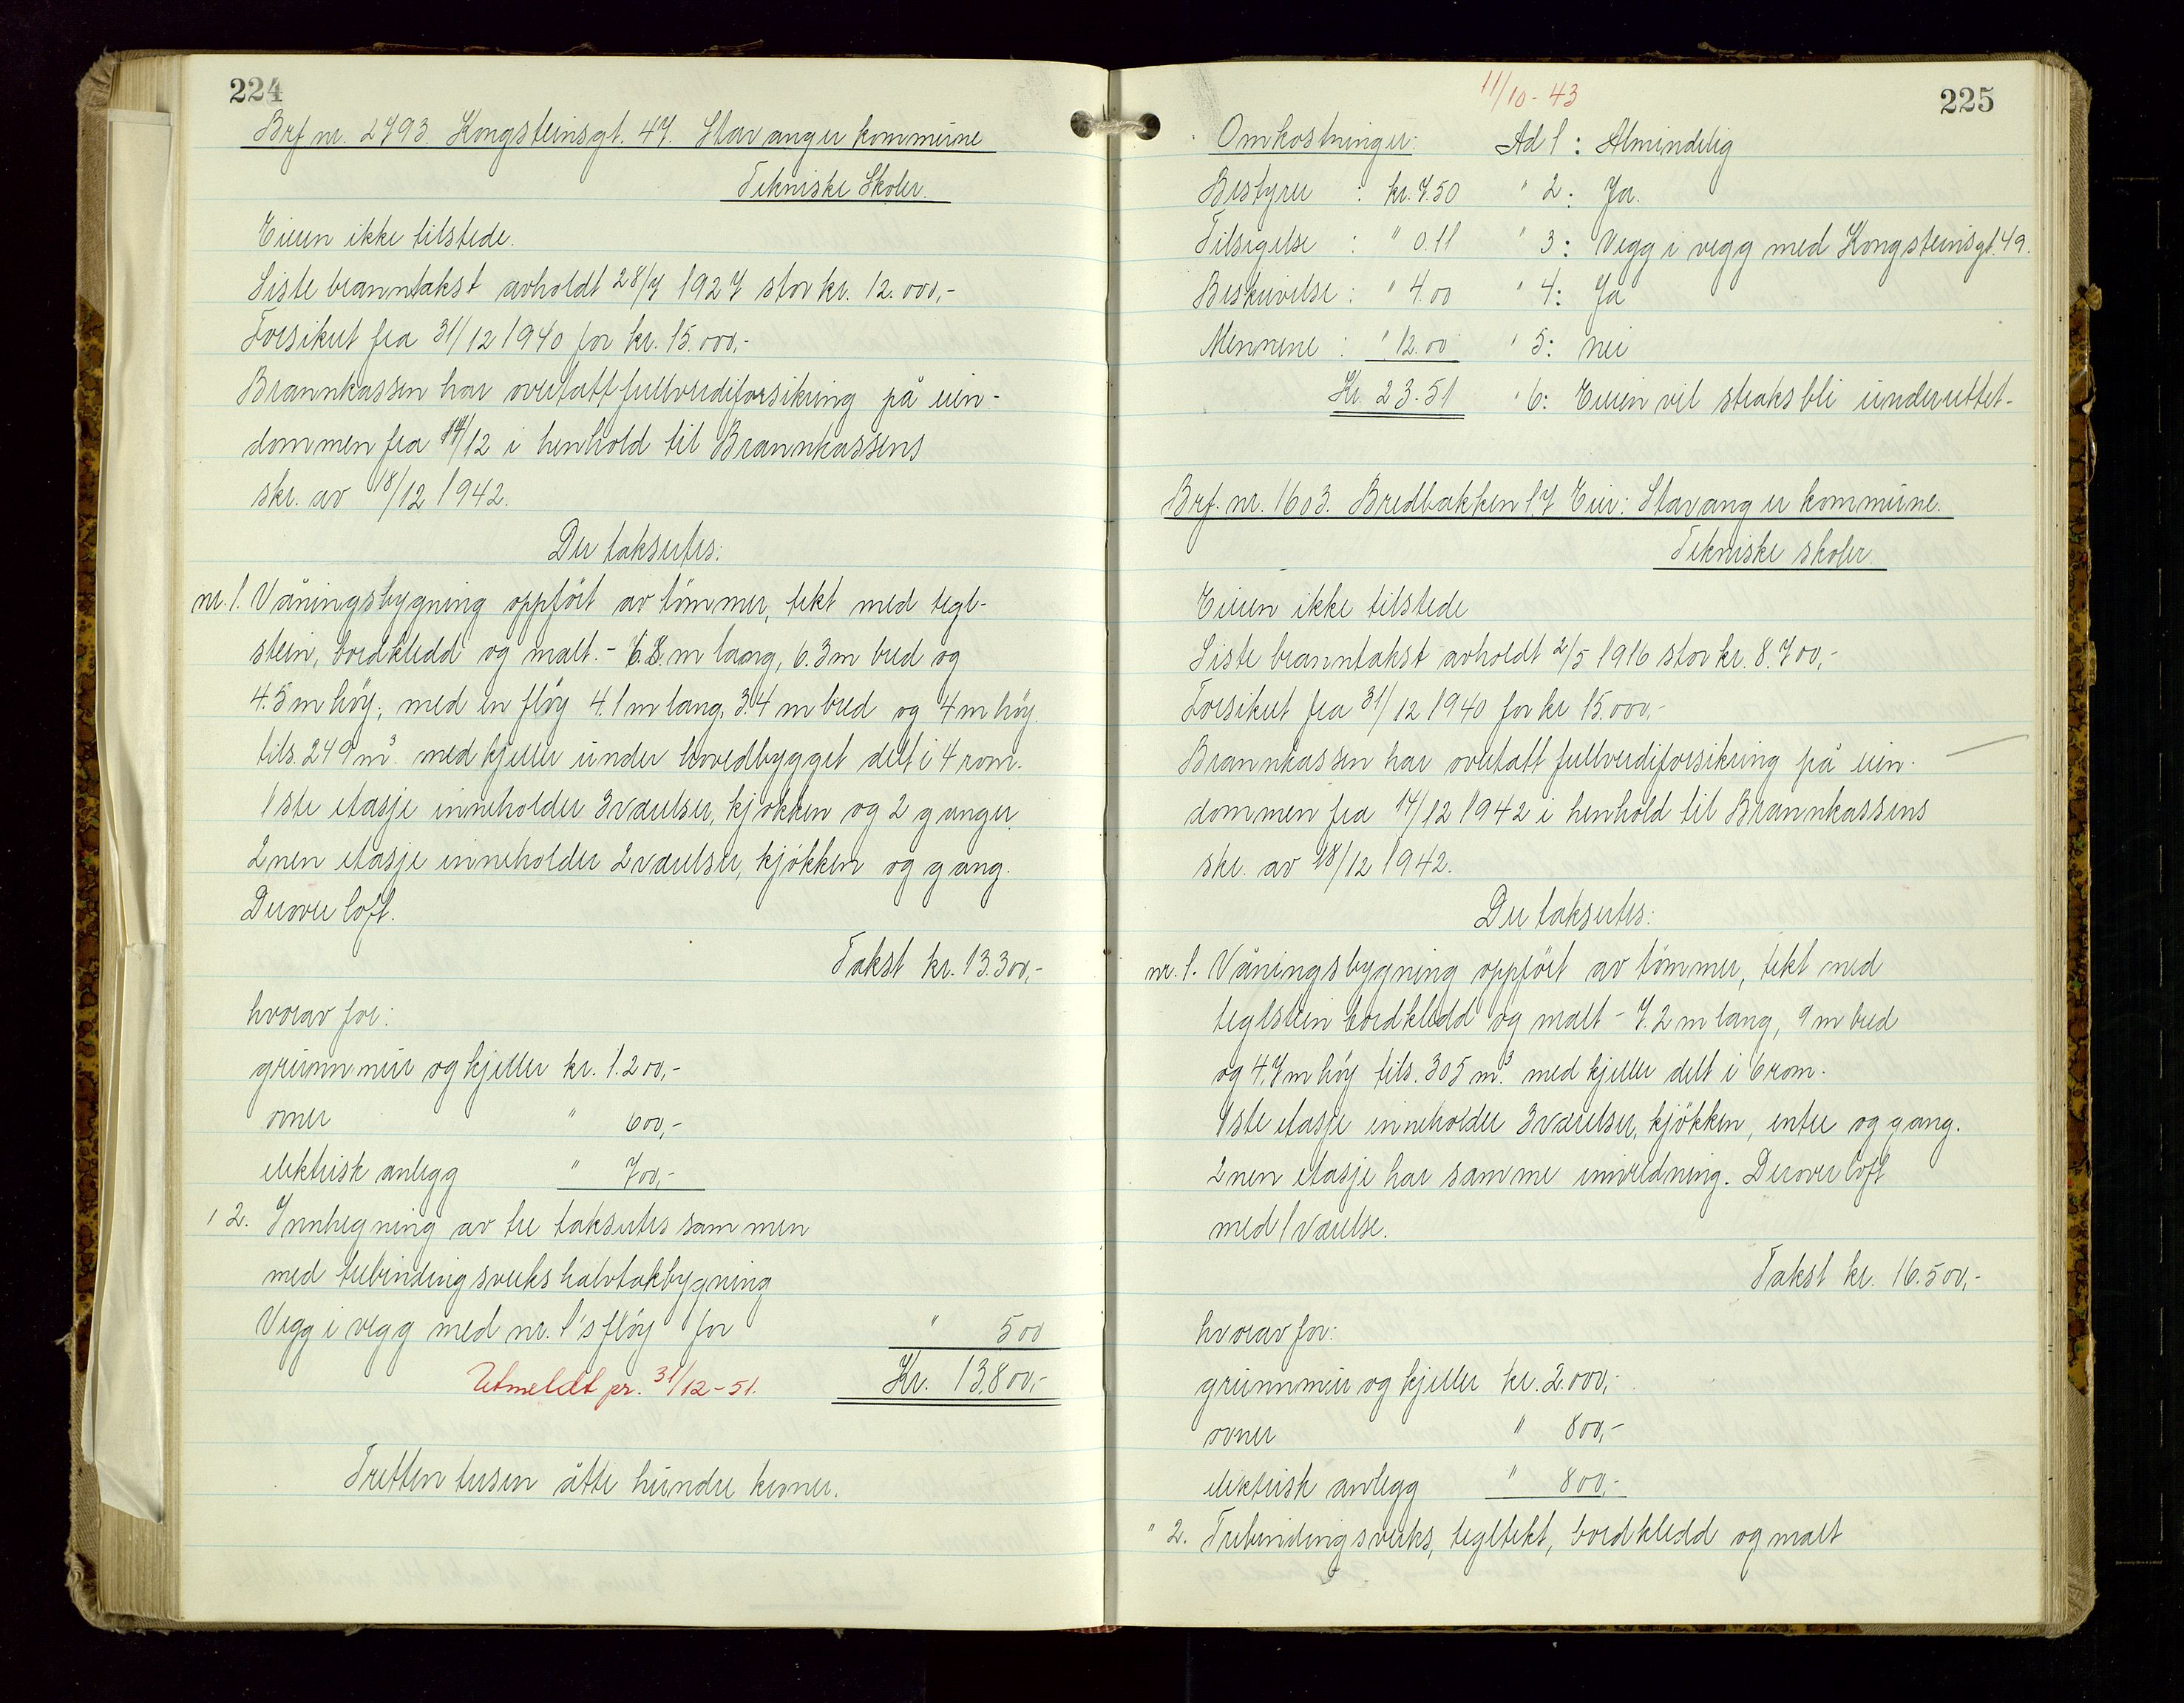 224
Brf nr. 2793. Kongsteinsgt. 47. Stavanger kommune
Tekniske Skoler.
Eieren ikke tilstede.
Siste branntakst avholdt 28/7 1927 stor kr. 12.000,-
Forsikret fra 31/12 1940 for kr. 15.000,-
Brannkassen har overtatt fullverdiforsikring på eien-
dommen fra 14/12 i henhold til Brannkassens
skr. av 18/12 1942.
Der takseres:
nr. 1. Våningsbygning oppført av tömmer, tekt med tegl-
stein, bordkledd og malt. - 6.8 m lang, 6.3 m bred og
4.5 m höy, med en flöy 4.1 m lang, 3.4 m bred og 4 m höy.
tils. 249 m³. med kjeller under hovedbygget delt i 4 rom.
1ste etasje inneholder 3 værelser, kjökken og 2 ganger.
2nen etasje inneholder 2 værelser, kjökken og gang.
Derover loft.
Takst kr. 13.300,-
hvorav for:
grunnmur og kjeller kr. 1.200,-
ovner " 600,-
elektrisk anlegg " 700,-
" 2. Innhegning av tre takseres sammen
med trebindingsverks halvtakbygning
Vegg i vegg med nr. 1's flöy for " 500
Utmeldt pr. 31/12-51. Kr. 13.800,-
Tretten tusen åtte hundre kroner.
225
11/10-43
Omkostninger: Ad 1: Almindelig
Bestyrer : kr. 7.50 " 2: Ja.
Tilsigelse : " 0.11 " 3: Vegg i vegg med Kongsteinsgt. 49.
Beskrivelse : " 4.00 " 4: Ja
Mennene : " 12.00 " 5: nei
Kr. 23.51 " 6: Eieren vil straks bli underrettet.
Brf. nr. 1603. Bredbakken 17 Eier: Stavanger kommune.
Tekniske skoler.
Eieren ikke tilstede
Siste branntakst avholdt 2/5 1916 stor kr. 8.700,-
Forsikret fra 31/12 1940 for kr 15.000,-
Brannkassen har overtatt fullverdiforsikring på eien-
dommen fra 14/12 1942 i henhold til Brannkassens
skr. av 18/12 1942.
Der takseres:
nr. 1. Våningsbygning oppført av tömmer, tekt med
teglstein bordkledd og malt - 7.2 m lang, 9 m bred
og 4.7 m höy tils. 305 m³. med kjeller delt i 6 rom.
1ste etasje inneholder 3 værelser, kjökken, entre og gang.
2nen etasje har samme innredning. Derover loft
med 1 værelse.
Takst kr. 16.500,-
hvorav for:
grunnmur og kjeller kr. 2.000,-
ovner " 800,-
elektrisk anlegg " 800,-
" 2. Trebindingsverks, tegltekt, bordkledd og malt